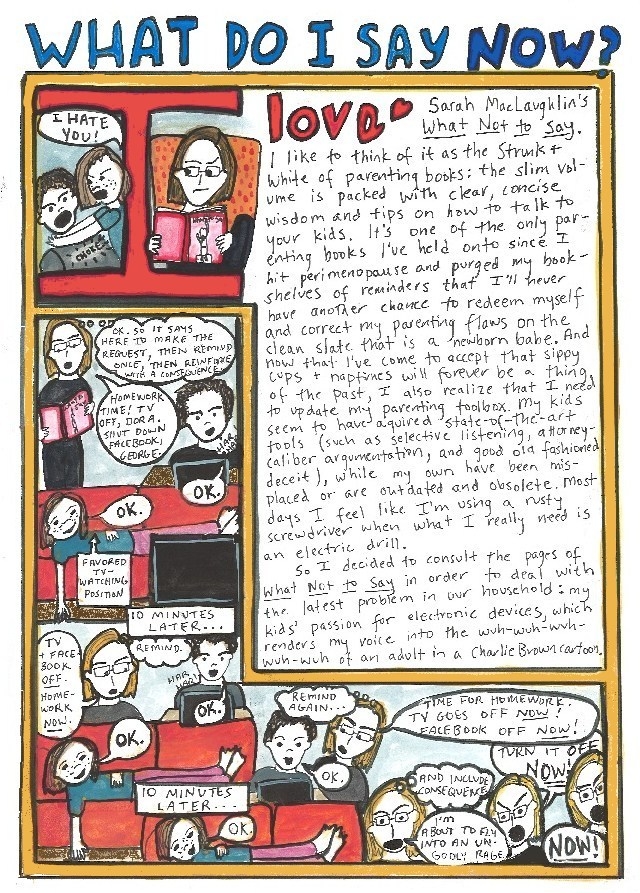 WHAT DO I SAY NOW?
I HATE
YOU!
CHORES
I
love
Sarah MacLaughlin's
What Not to Say.
I like to think of it as the Strunk +
White of parenting books: the slim vol-
ume is packed with clear, concise
wisdom and tips on how to talk to
your kids. It's one of the only par-
enting books I've held onto since I
hit perimenopause and purged my book-
shelves of reminders that I'll never
have another chance to redeem myself
and correct my parenting flaws on the
clean slate that is a newborn babe. And
now that I've come to accept that sippy
cups + naptimes will forever be a thing
of the past, I also realize that I need
to update my parenting toolbox. My kids
seem to have aquired state-of-the-art
tools (such as selective listening, attorney-
caliber argumentation, and good old fashioned
deceit), while my own have been mis-
placed or are outdated and obsolete. Most
days I feel like I'm using a rusty
screwdriver when what I really need is
an electric drill.
So I decided to consult the pages of
What Not to Say in order to deal with
the latest problem in our household: my
kids' passion for electronic devices, which
renders my voice into the wuh-wuh-wuh-
wuh-wuh of an adult in a Charlie Brown cartoon.
OK. SO IT SAYS
HERE TO MAKE THE
REQUEST, THEN REMIND
ONCE, THEN REINFORCE
WITH A CONSEQUENCE.
HOMEWORK
TIME! TV
OFF, DORA.
SHUT DOWN
FACEBOOK,
GEORGE.
HAR
OK.
OK.
FAVORED
TV-
WATCHING
POSITION
10 MINUTES
LATER...
TV
+ FACE-
BOOK
OFF.
HOME-
WORK
NOW.
REMIND.
HAR
HAR
OK.
OK.
10 MINUTES
LATER...
OK.
REMIND
AGAIN...
OK.
TIME FOR HOMEWORK.
TV GOES OFF NOW!
FACEBOOK OFF NOW!
AND INCLUDE
CONSEQUENCE
I'M
ABOUT TO FLY
INTO AN UN-
GODLY RAGE
TURN IT OFF
NOW!
NOW!